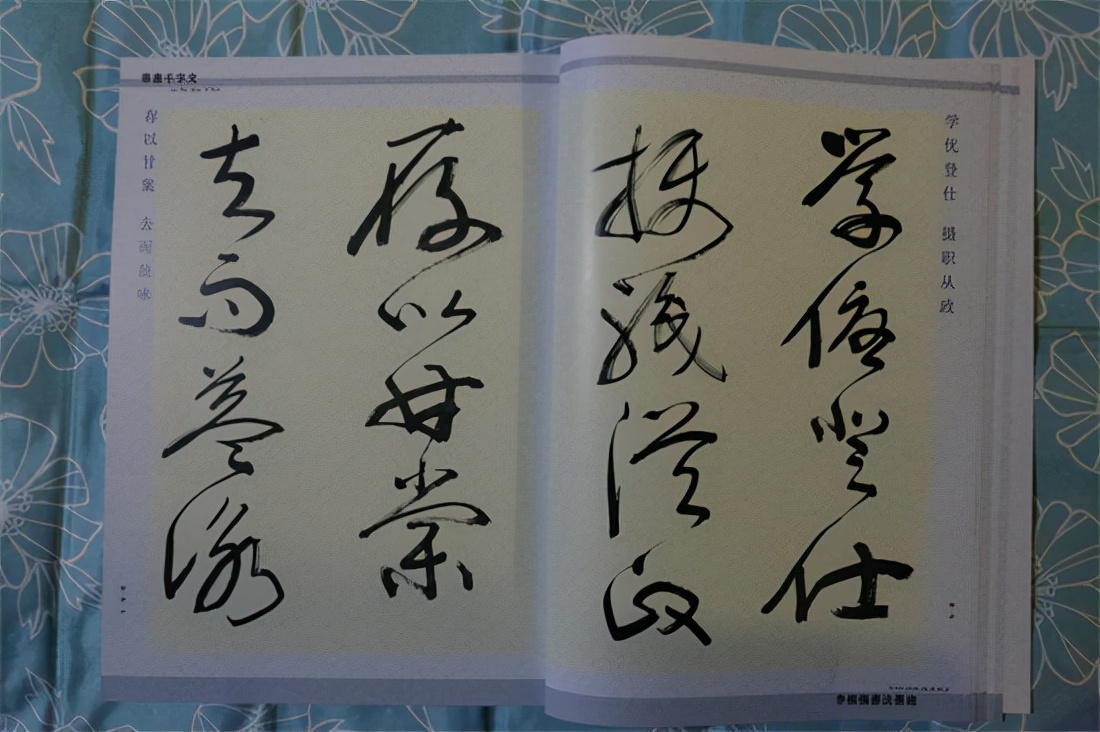 学优登仕 摄职从政
學優登仕
攝職從政
草書千字文
存以甘棠 去而益咏
存以甘棠
去而益詠